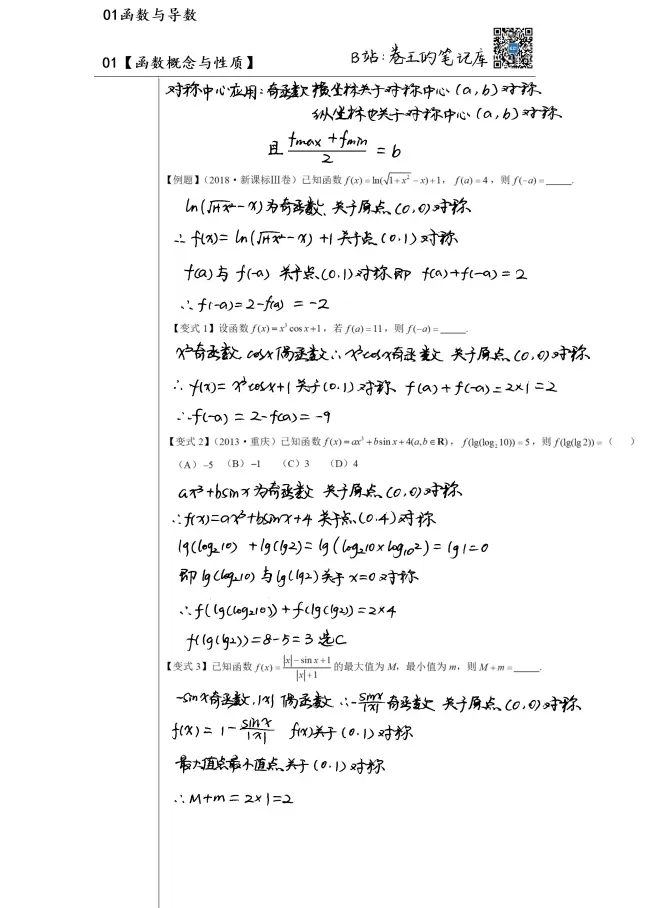 01函数与导数
01【函数概念与性质】
B站:卷王的笔记库
对称中心应用:奇函数 横坐标关于对称中心(a,b)对称
纵坐标也关于对称中心(a,b)对称
且 (fmax + fmin)/2 = b
【例题】(2018·新课标Ⅲ卷)已知函数 f(x)=ln(√(1+x²)-x)+1, f(a)=4,则 f(-a)=_____.
ln(√(1+x²)-x)为奇函数、关于原点(0,0)对称
∴ f(x)=ln(√(1+x²)-x)+1关于点(0.1)对称
f(a)与 f(-a) 关于点(0.1)对称 即 f(a)+f(-a)=2
∴f(-a)=2-f(a) = -2
【变式 1】设函数 f(x)=x³cosx+1,若 f(a)=11,则 f(-a)=_____.
x³奇函数 cosx偶函数∴x³cosx奇函数 关于原点(0,0)对称
∴ y(x)= x³cosx+1关于(0.1)对称 f(a)+f(-a)=2×1=2
∴f(-a) = 2-f(a) = -9
【变式 2】(2013·重庆)已知函数 f(x)=ax³+bsinx+4(a,b∈R), f(lg(log₂10))=5,则 f(lg(lg2))=( )
(A)-5 (B)-1 (C)3 (D)4
ax³+bsinx为奇函数 关于原点(0,0)对称
∴f(x)=ax³+bsinx+4 关于点(0.4)对称
lg(log₂10) +lg(lg2)= lg(log₂10×log₁₀2)=lg1=0
即 lg(log₂10)与lg(lg2)关于 x=0 对称
∴f(lg(log₂10))+f(lg(lg2))=2×4
f(lg(lg2))=8-5=3 选C
【变式 3】已知函数 f(x)=(|x|-sinx+1)/(|x|+1) 的最大值为 M,最小值为 m,则 M+m=_____.
-sinx奇函数,|x| 偶函数 ∴-sinx/|x| 奇函数 关于原点(0,0)对称
f(x)= 1-sinx/|x| f(x)关于(0.1)对称
最大值点最小值点关于(0.1)对称
∴M+m=2×1=2